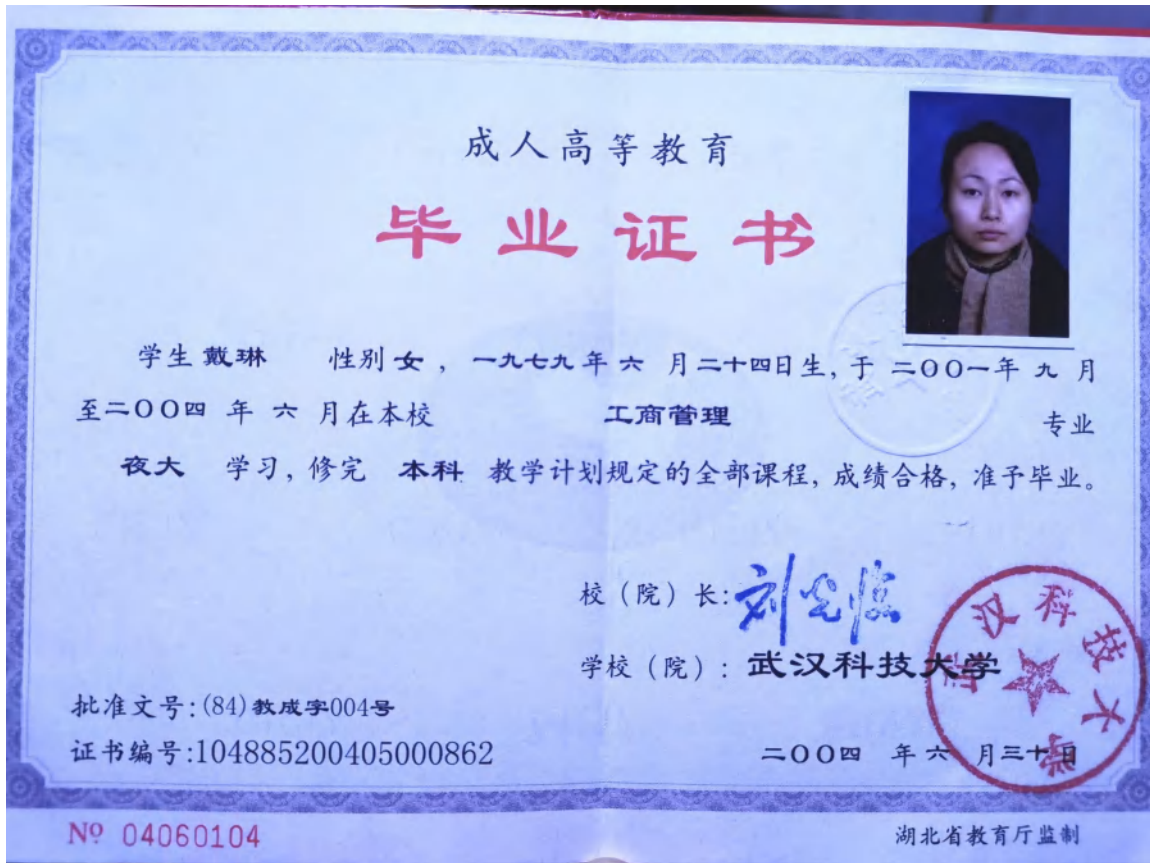 成人高等教育
毕业证书
学生 戴琳 性别 女 , 一九七九 年 六 月二十四日生, 于 二〇〇一年 九 月
至二〇〇四 年 六 月在本校 工商管理 专业
夜大 学习, 修完 本科 教学计划规定的全部课程, 成绩合格, 准予毕业。
校（院）长: 刘光临
学校（院）: 武汉科技大学
武汉科技大学
批准文号:(84)教成字004号
证书编号:104885200405000862
二〇〇四 年 六 月三十日
№ 04060104
湖北省教育厅监制